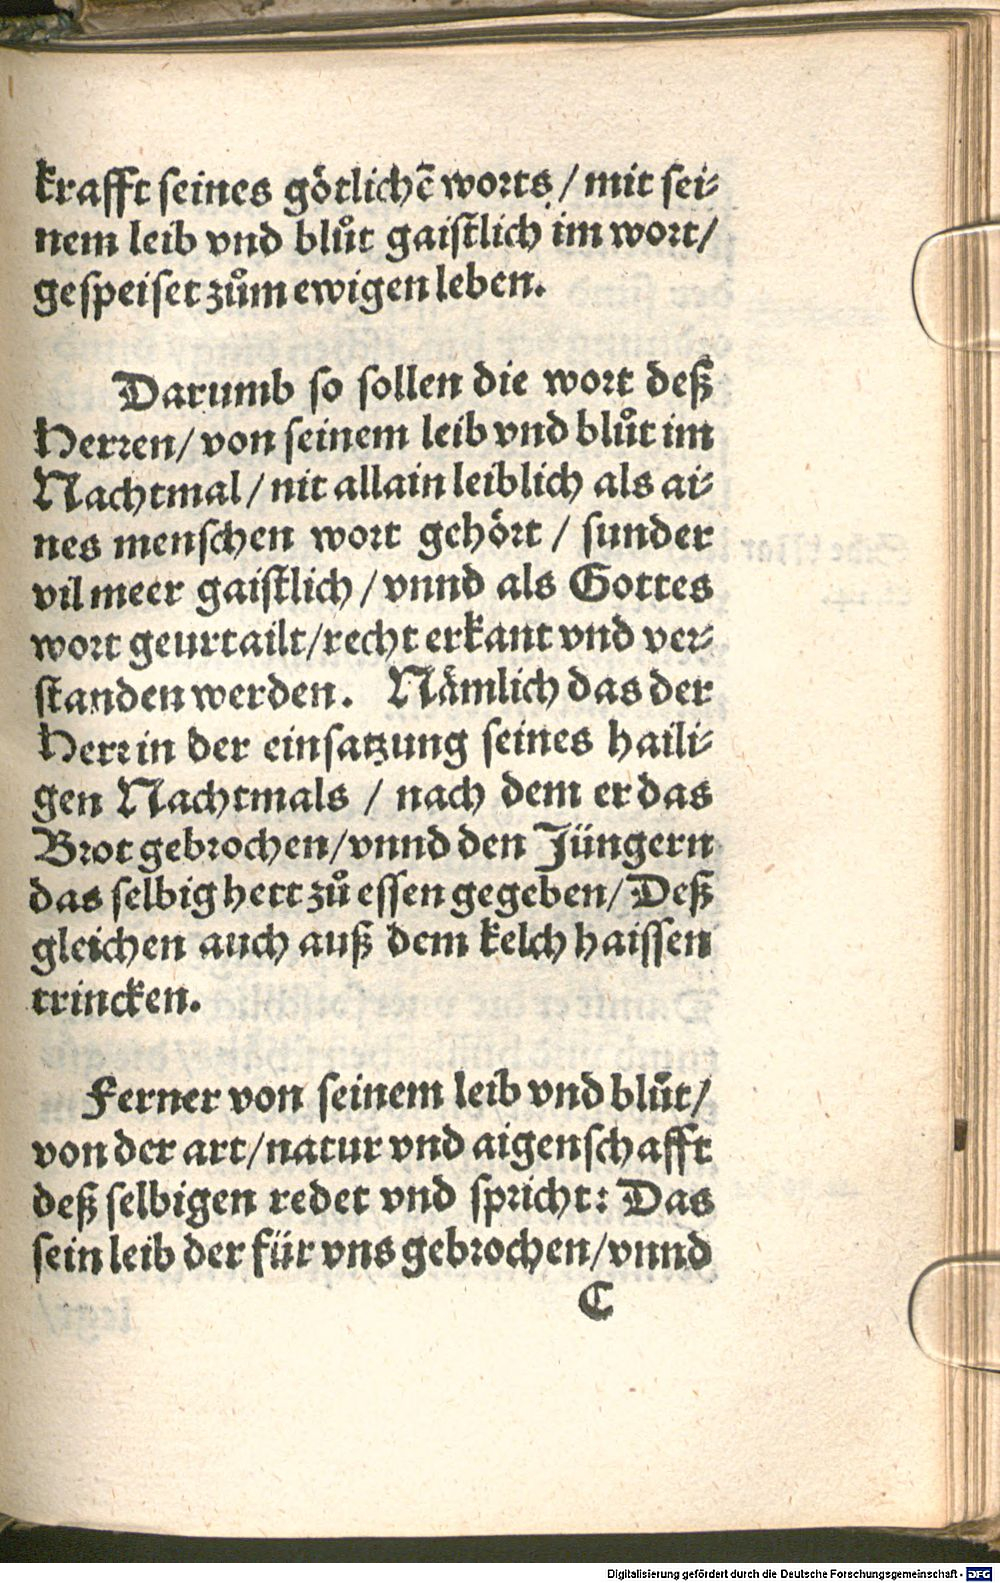 krafft seines götlichē worts / mit sei⸗
nem leib vnd blůt gaistlich im wort /
gespeiset zům ewigen leben.
Darumb so sollen die wort deß
Herren / von seinem leib vnd blůt im
Nachtmal / nit allain leiblich als ai⸗
nes menschen wort gehört / sunder
vil meer gaistlich / vnnd als Gottes
wort geurtailt / recht erkant vnd ver⸗
standen werden. Nämlich das der
Herr in der einsatzung seines haili⸗
gen Nachtmals / nach dem er das
Brot gebrochen / vnnd den Jüngern
das selbig hett zů essen gegeben / Deß
gleichen auch auß dem kelch haissen
trincken.
Ferner von seinem leib vnd blůt /
von der art / natur vnd aigenschafft
deß selbigen redet vnd spricht: Das
sein leib der für vns gebrochen / vnnd
C
Digitalisierung gefördert durch die Deutsche Forschungsgemeinschaft - DFG